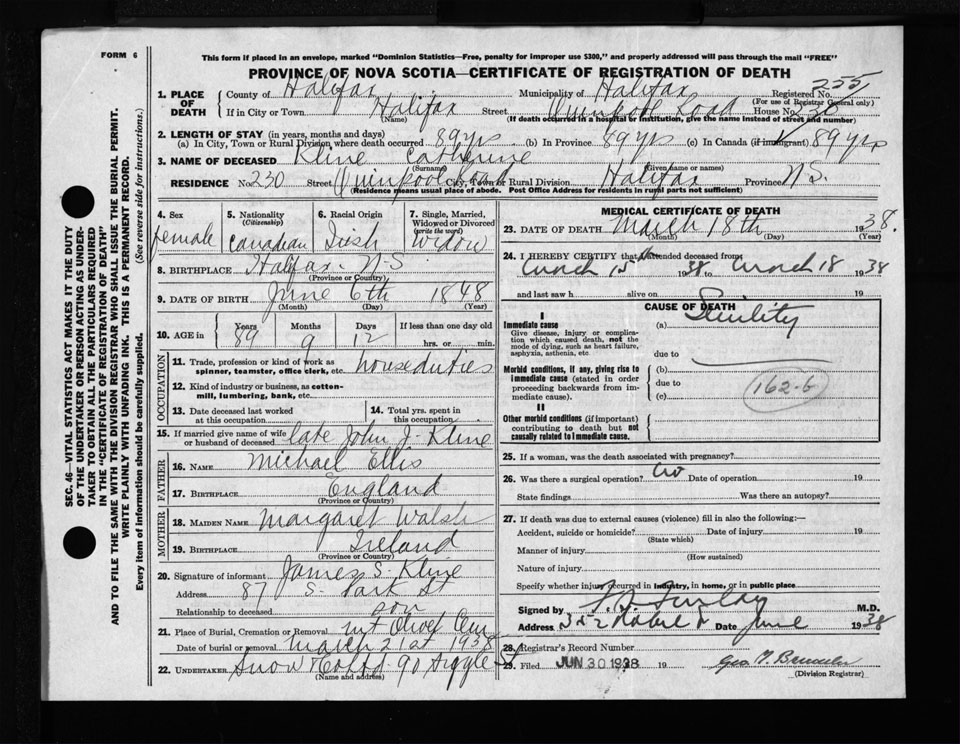 FORM 6
This form if placed in an envelope, marked "Dominion Statistics—Free, penalty for improper use $300," and properly addressed will pass through the mail "FREE"
PROVINCE OF NOVA SCOTIA—CERTIFICATE OF REGISTRATION OF DEATH
1. PLACE OF DEATH County of Halifax Municipality of Halifax Registered No. 255
(For use of Registrar General only)
If in City or Town Halifax Street Quinpool Road House No. 230
(Name) (If death occurred in a hospital or institution, give the name instead of street and number)
2. LENGTH OF STAY (in years, months and days)
(a) In City, Town or Rural Division where death occurred 89 yrs (b) In Province 89 yrs (c) In Canada (if immigrant) 89 yrs
3. NAME OF DECEASED Kline Catherine
(Surname) (Given name or names)
RESIDENCE No. 230 Street Quinpool Road City, Town or Rural Division Halifax Province N.S.
(Residence means usual place of abode. Post Office Address for residents in rural parts not sufficient)
4. Sex female
5. Nationality (Citizenship) Canadian
6. Racial Origin Irish
7. Single, Married, Widowed or Divorced (write the word) Widow
8. BIRTHPLACE Halifax N-S
(Province or Country)
9. DATE OF BIRTH June 6th 1848
(Month) (Day) (Year)
10. AGE in Years 89 Months 9 Days 12 If less than one day old hrs. or min.
OCCUPATION
11. Trade, profession or kind of work as spinner, teamster, office clerk, etc. house duties
12. Kind of industry or business, as cotton-mill, lumbering, bank, etc.
13. Date deceased last worked at this occupation
14. Total yrs. spent in this occupation
15. If married give name of wife or husband of deceased late John J. Kline
FATHER
16. NAME Michael Ellis
17. BIRTHPLACE England
(Province or Country)
MOTHER
18. MAIDEN NAME Margaret Walsh
19. BIRTHPLACE Ireland
(Province or Country)
20. Signature of informant James S. Kline
Address 87 S. Park St
Relationship to deceased son
21. Place of Burial, Cremation or Removal Mt Olivet Cem
Date of burial or removal March 21st 1938
22. UNDERTAKER Snow & Co Ltd 90 Argyle St
(Name and address)
MEDICAL CERTIFICATE OF DEATH
23. DATE OF DEATH March 18th 1938.
(Month) (Day) (Year)
24. I HEREBY CERTIFY that I attended deceased from
March 15 1938 to March 18 1938
and last saw h alive on 19
CAUSE OF DEATH
I
Immediate cause (a) Senility
Give disease, injury or complication which caused death, not the mode of dying, such as heart failure, asphyxia, asthenia, etc. due to
Morbid conditions, if any, giving rise to immediate cause (stated in order proceeding backwards from immediate cause). (b)
due to
(c)
162-b
II
Other morbid conditions (if important) contributing to death but not causally related to immediate cause.
25. If a woman, was the death associated with pregnancy?
26. Was there a surgical operation? no Date of operation 19
State findings Was there an autopsy?
27. If death was due to external causes (violence) fill in also the following:—
Accident, suicide or homicide? Date of injury 19
(State which)
Manner of injury
(How sustained)
Nature of injury
Specify whether injury occurred in industry, in home, or in public place
Signed by M.D.
Address Date June 1938
28. Registrar's Record Number
29. Filed JUN 30 1938
(Division Registrar)
SEC. 46—VITAL STATISTICS ACT MAKES IT THE DUTY
OF THE UNDERTAKER OR PERSON ACTING AS UNDER-
TAKER TO OBTAIN ALL THE PARTICULARS REQUIRED
IN THE "CERTIFICATE OF REGISTRATION OF DEATH"
AND TO FILE THE SAME WITH THE DIVISION REGISTRAR WHO SHALL ISSUE THE BURIAL PERMIT.
WRITE PLAINLY WITH UNFADING INK. THIS IS A PERMANENT RECORD.
Every item of information should be carefully supplied. (See reverse side for instructions.)